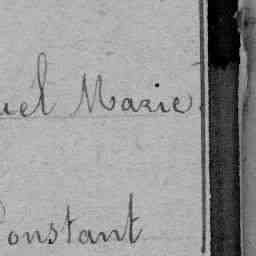 uel Marie
Constant